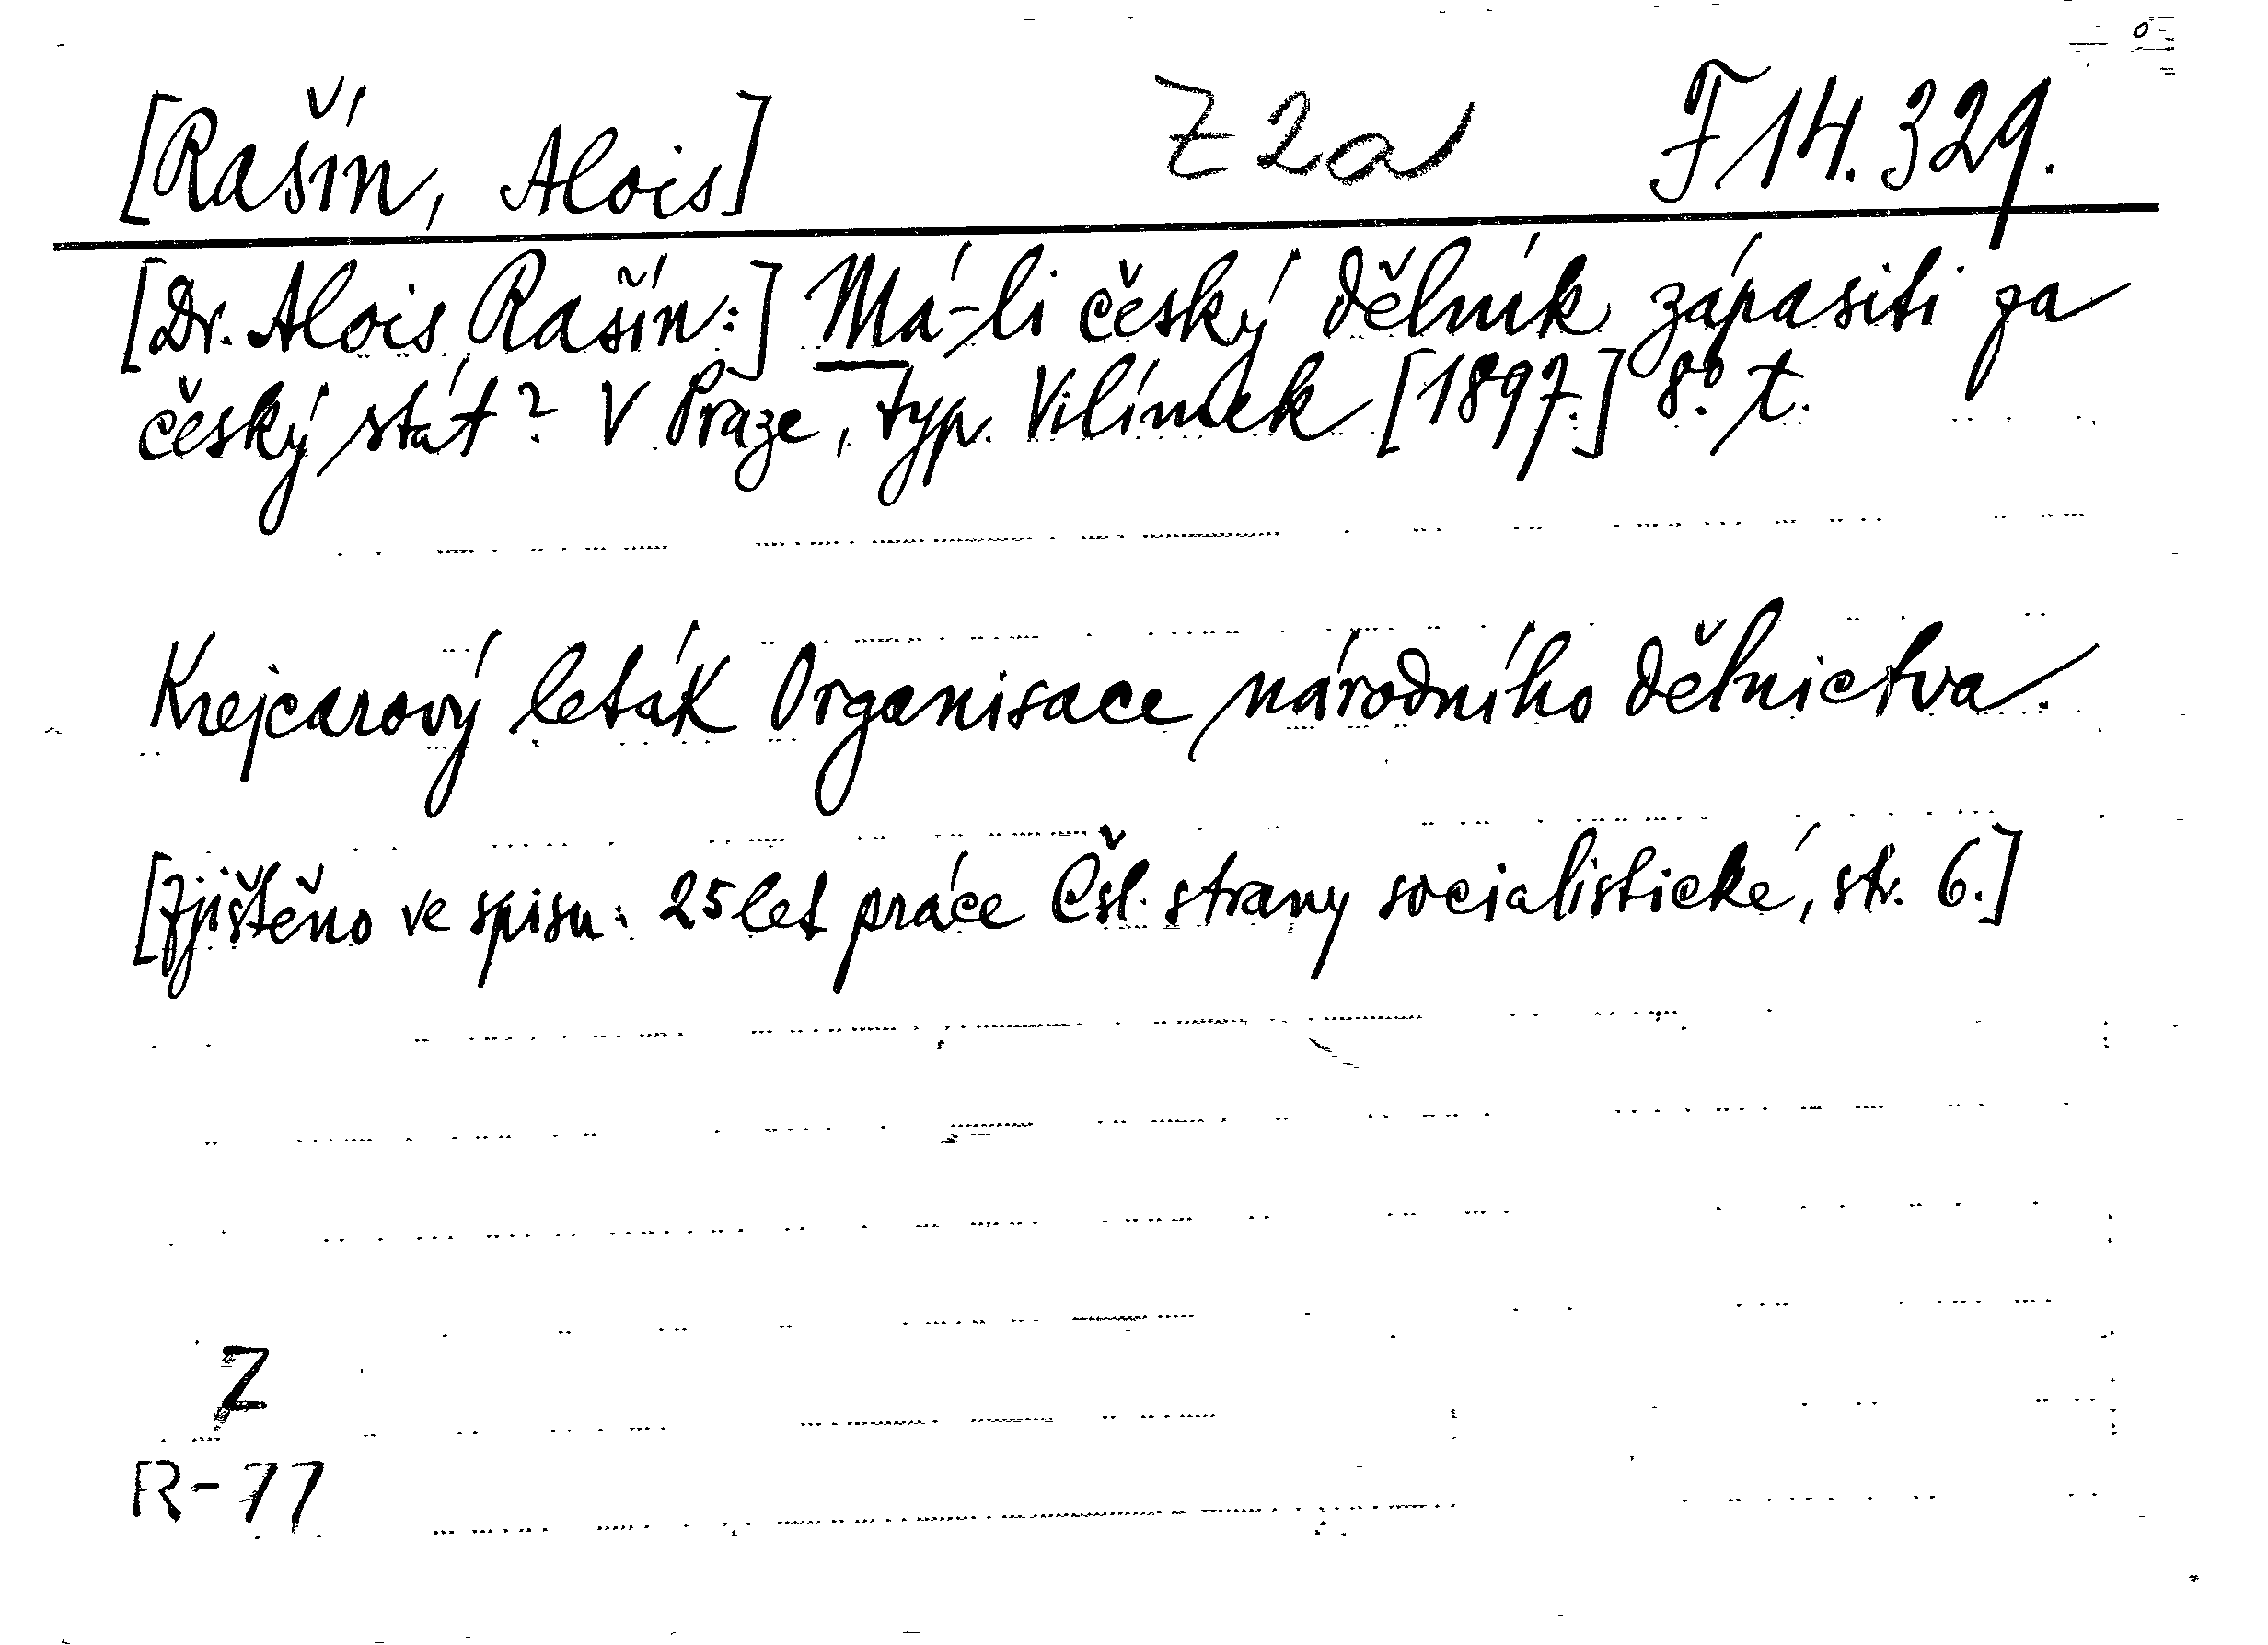 [Rašín, Alois] Z 2a F 14.329.
[Dr. Alois Rašín:] Má-li český dělník zápasiti za
český stát? V Praze, typ. Vilímek [1897.] 8.° t.
Krejcarový leták Organisace národního dělnictva.
[Zjištěno ve spisu: 25 let práce Čsl. strany socialistické, str. 6.]
Z
R-77